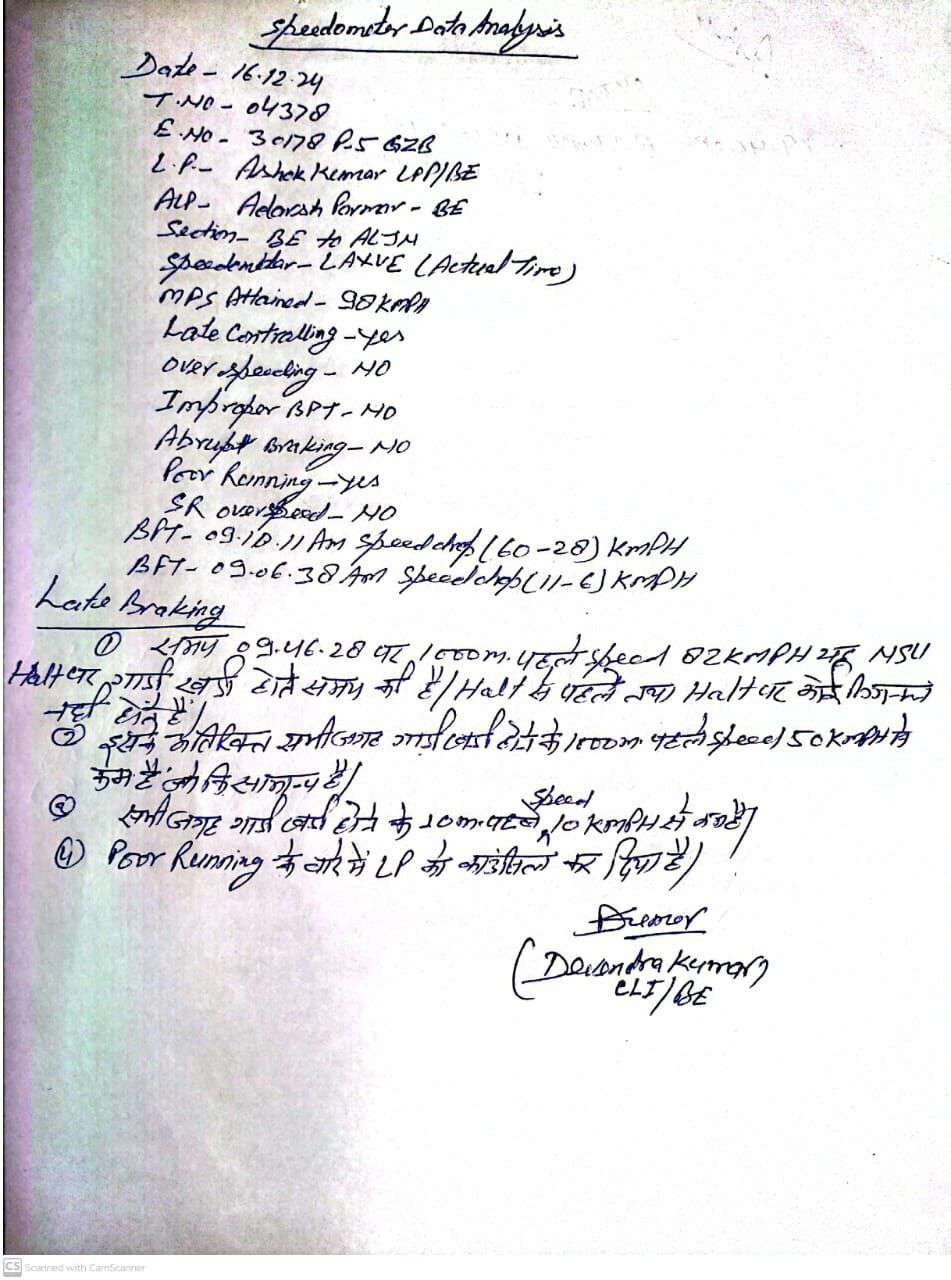 Speedometer Data Analysis
Date - 16.12.24
T.NO - 04378
E.NO - 30178 P.5 GZB
L.P. - Ashok Kumar LPP/BE
ALP - Adarsh Parmar - BE
Section - BE to ALJN
Speedometer - LAXVE (Actual Time)
MPS Attained - 98 KMPH
Late Controlling - yes
Over speeding - NO
Improper BPT - NO
Abrupt Braking - NO
Poor Running - yes
SR overspeed - NO
BPT - 09.10.11 Am Speed drop (60-28) KMPH
BFT - 09.06.38 Am Speed drop (11-6) KMPH
Late Braking
① समय 09.46.28 पर 1000m. पहले speed 82 KMPH यह MSU
Halt पर गाडी खडी होते समय की है। Halt से पहले तथा Halt पर कोई सिगनल
नहीं होते हैं।
② इसके अतिरिक्त सभी जगह गाडी खडी होने के 1000m. पहले speed 50 KMPH से
कम है जो कि सामान्य है।
③ सभी जगह गाडी खडी होने के 10m. पहले speed 10 KMPH से कम है।
④ Poor Running के बारे में LP को काउंसिल कर दिया है।
(Devendra Kumar)
CLI/BE
CS Scanned with CamScanner